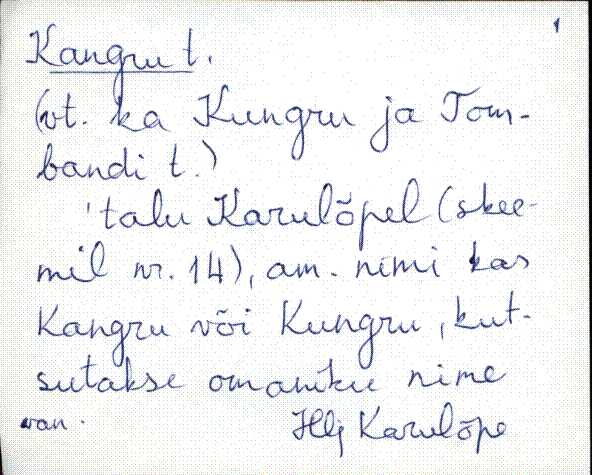 1
Kangru t.
(vt. ka Kungru ja Tom-
bandi t.)
'talu Karulõpel (skee-
mil nr. 14), am. nimi kas
Kangru või Kungru, kut-
sutakse omaniku nime
van. Hlj Karulõpe